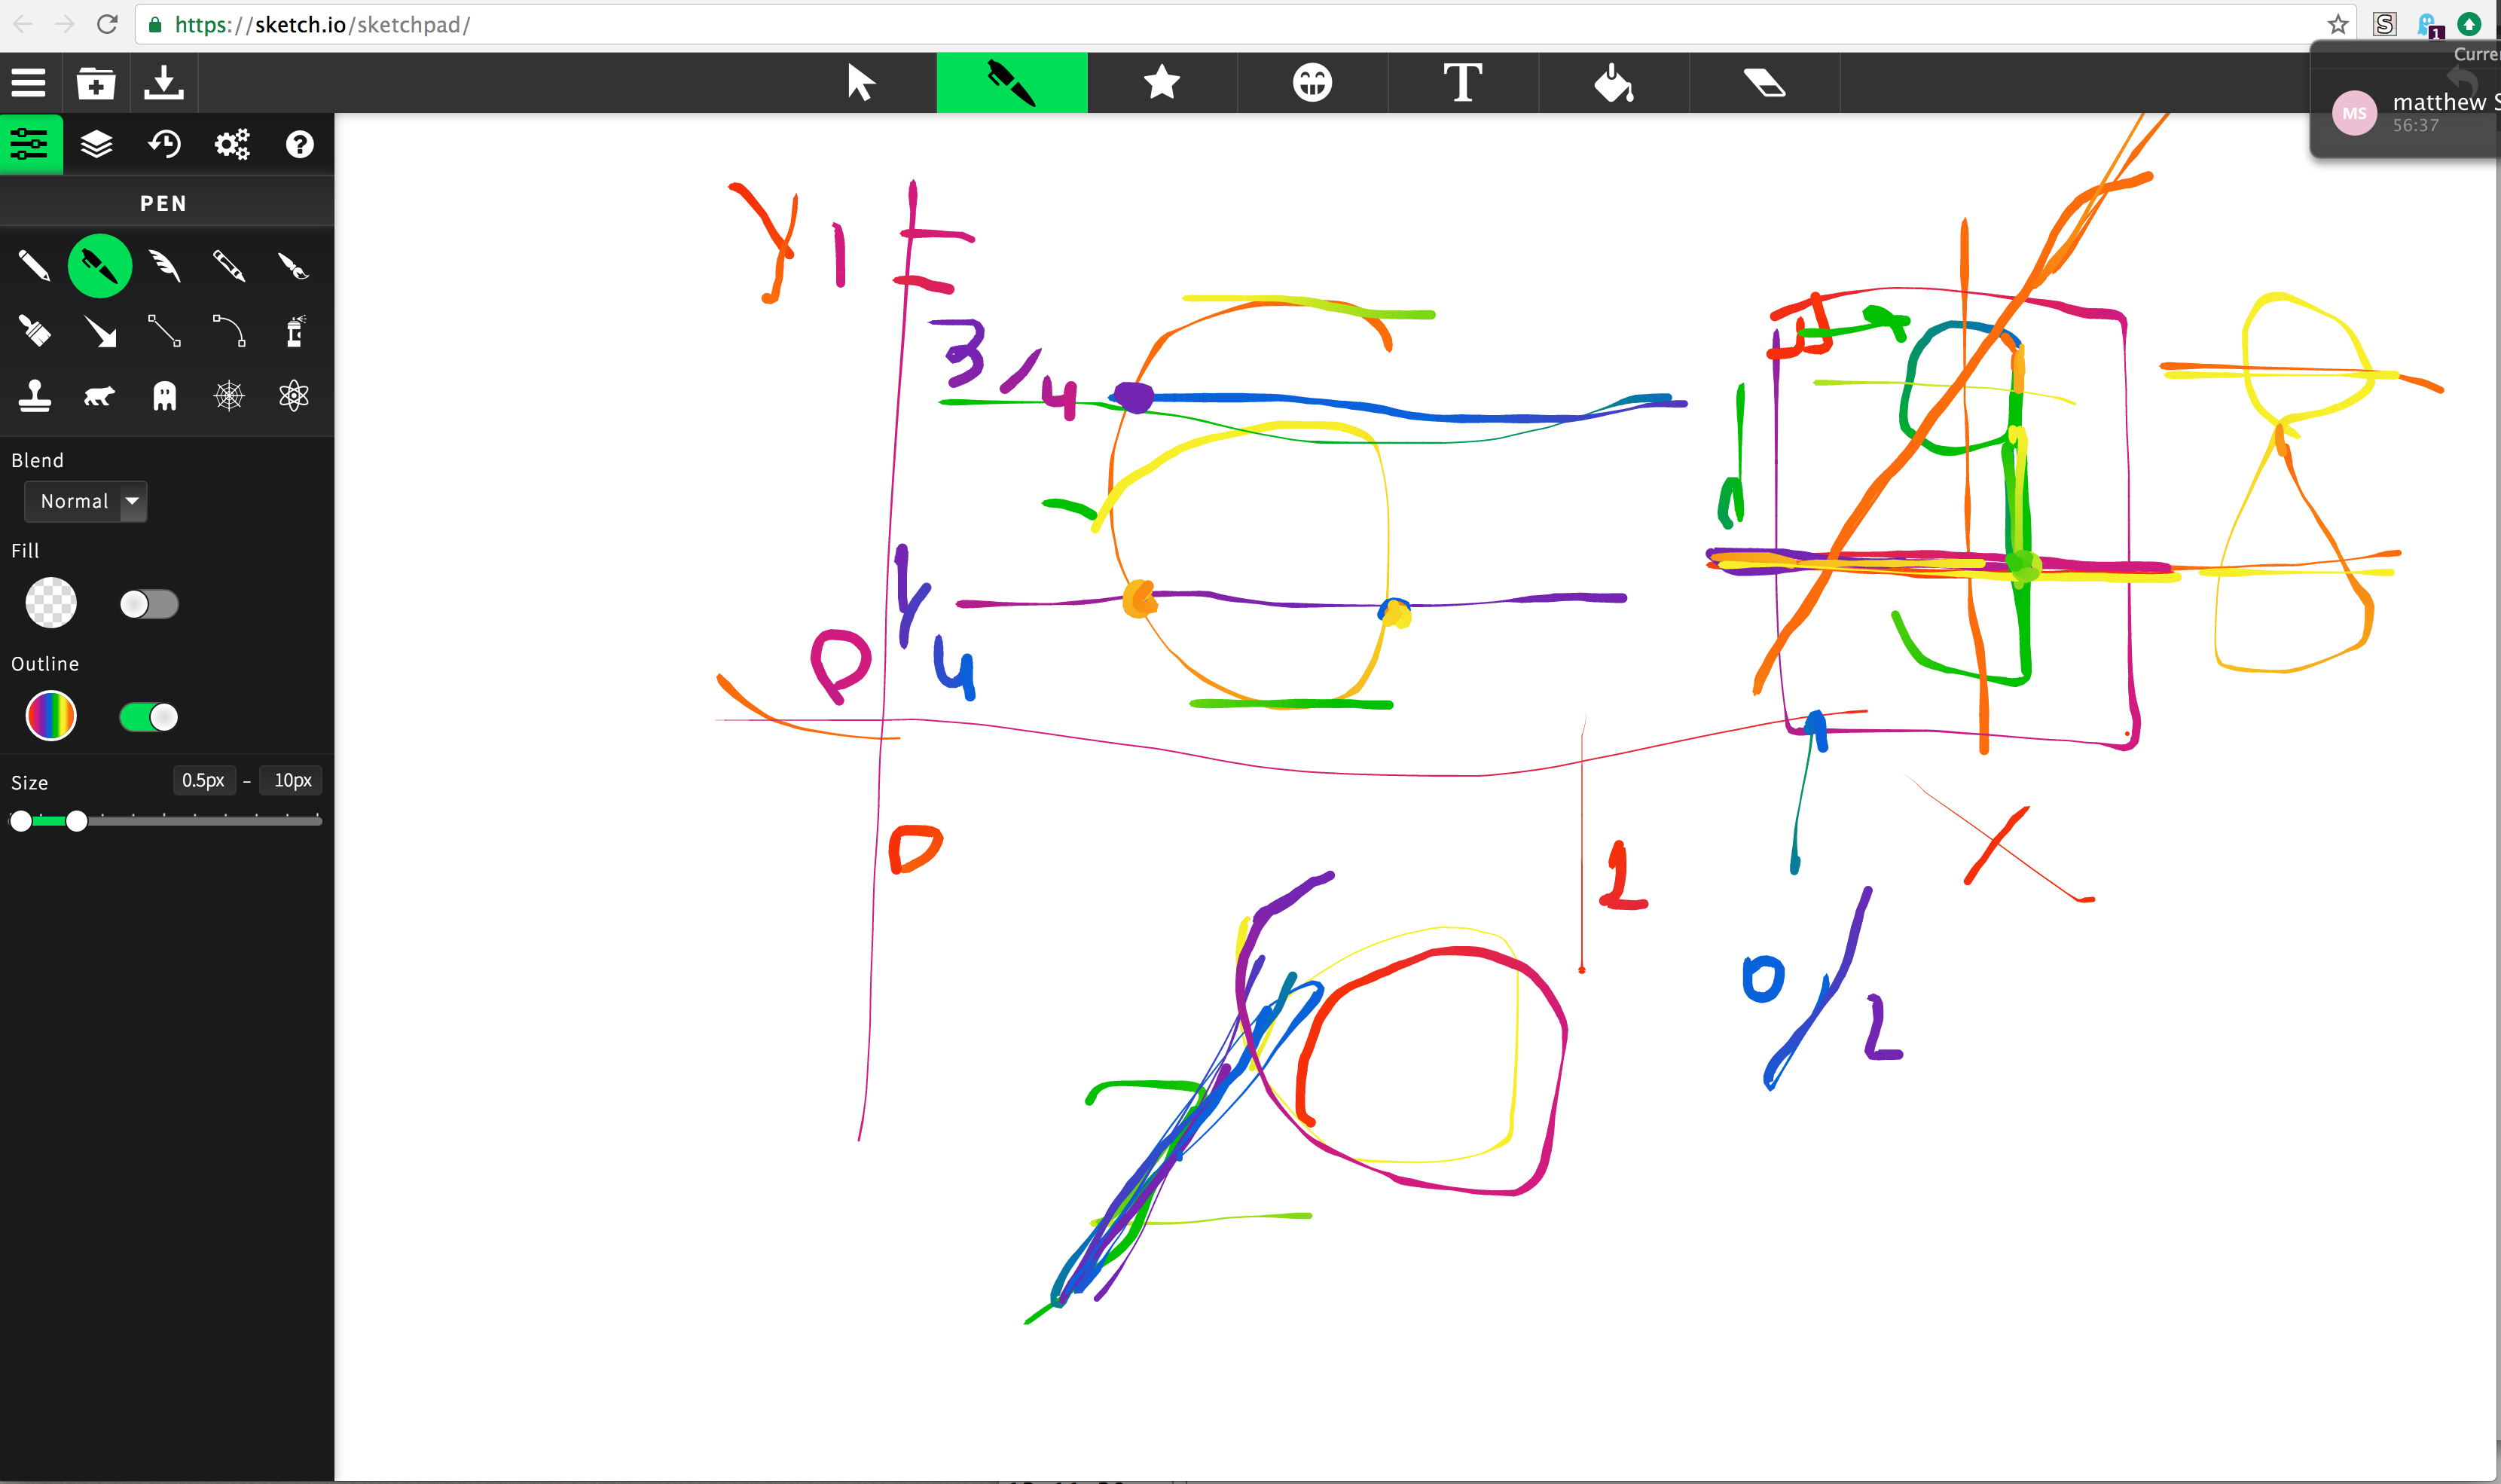 https://sketch.io/sketchpad/
S
1
Curre
T
MS
matthew S
56:37
PEN
Y 1
3/4
Blend
Normal
Fill
Outline
Size 0.5px - 10px
4
0
1
X
0/2